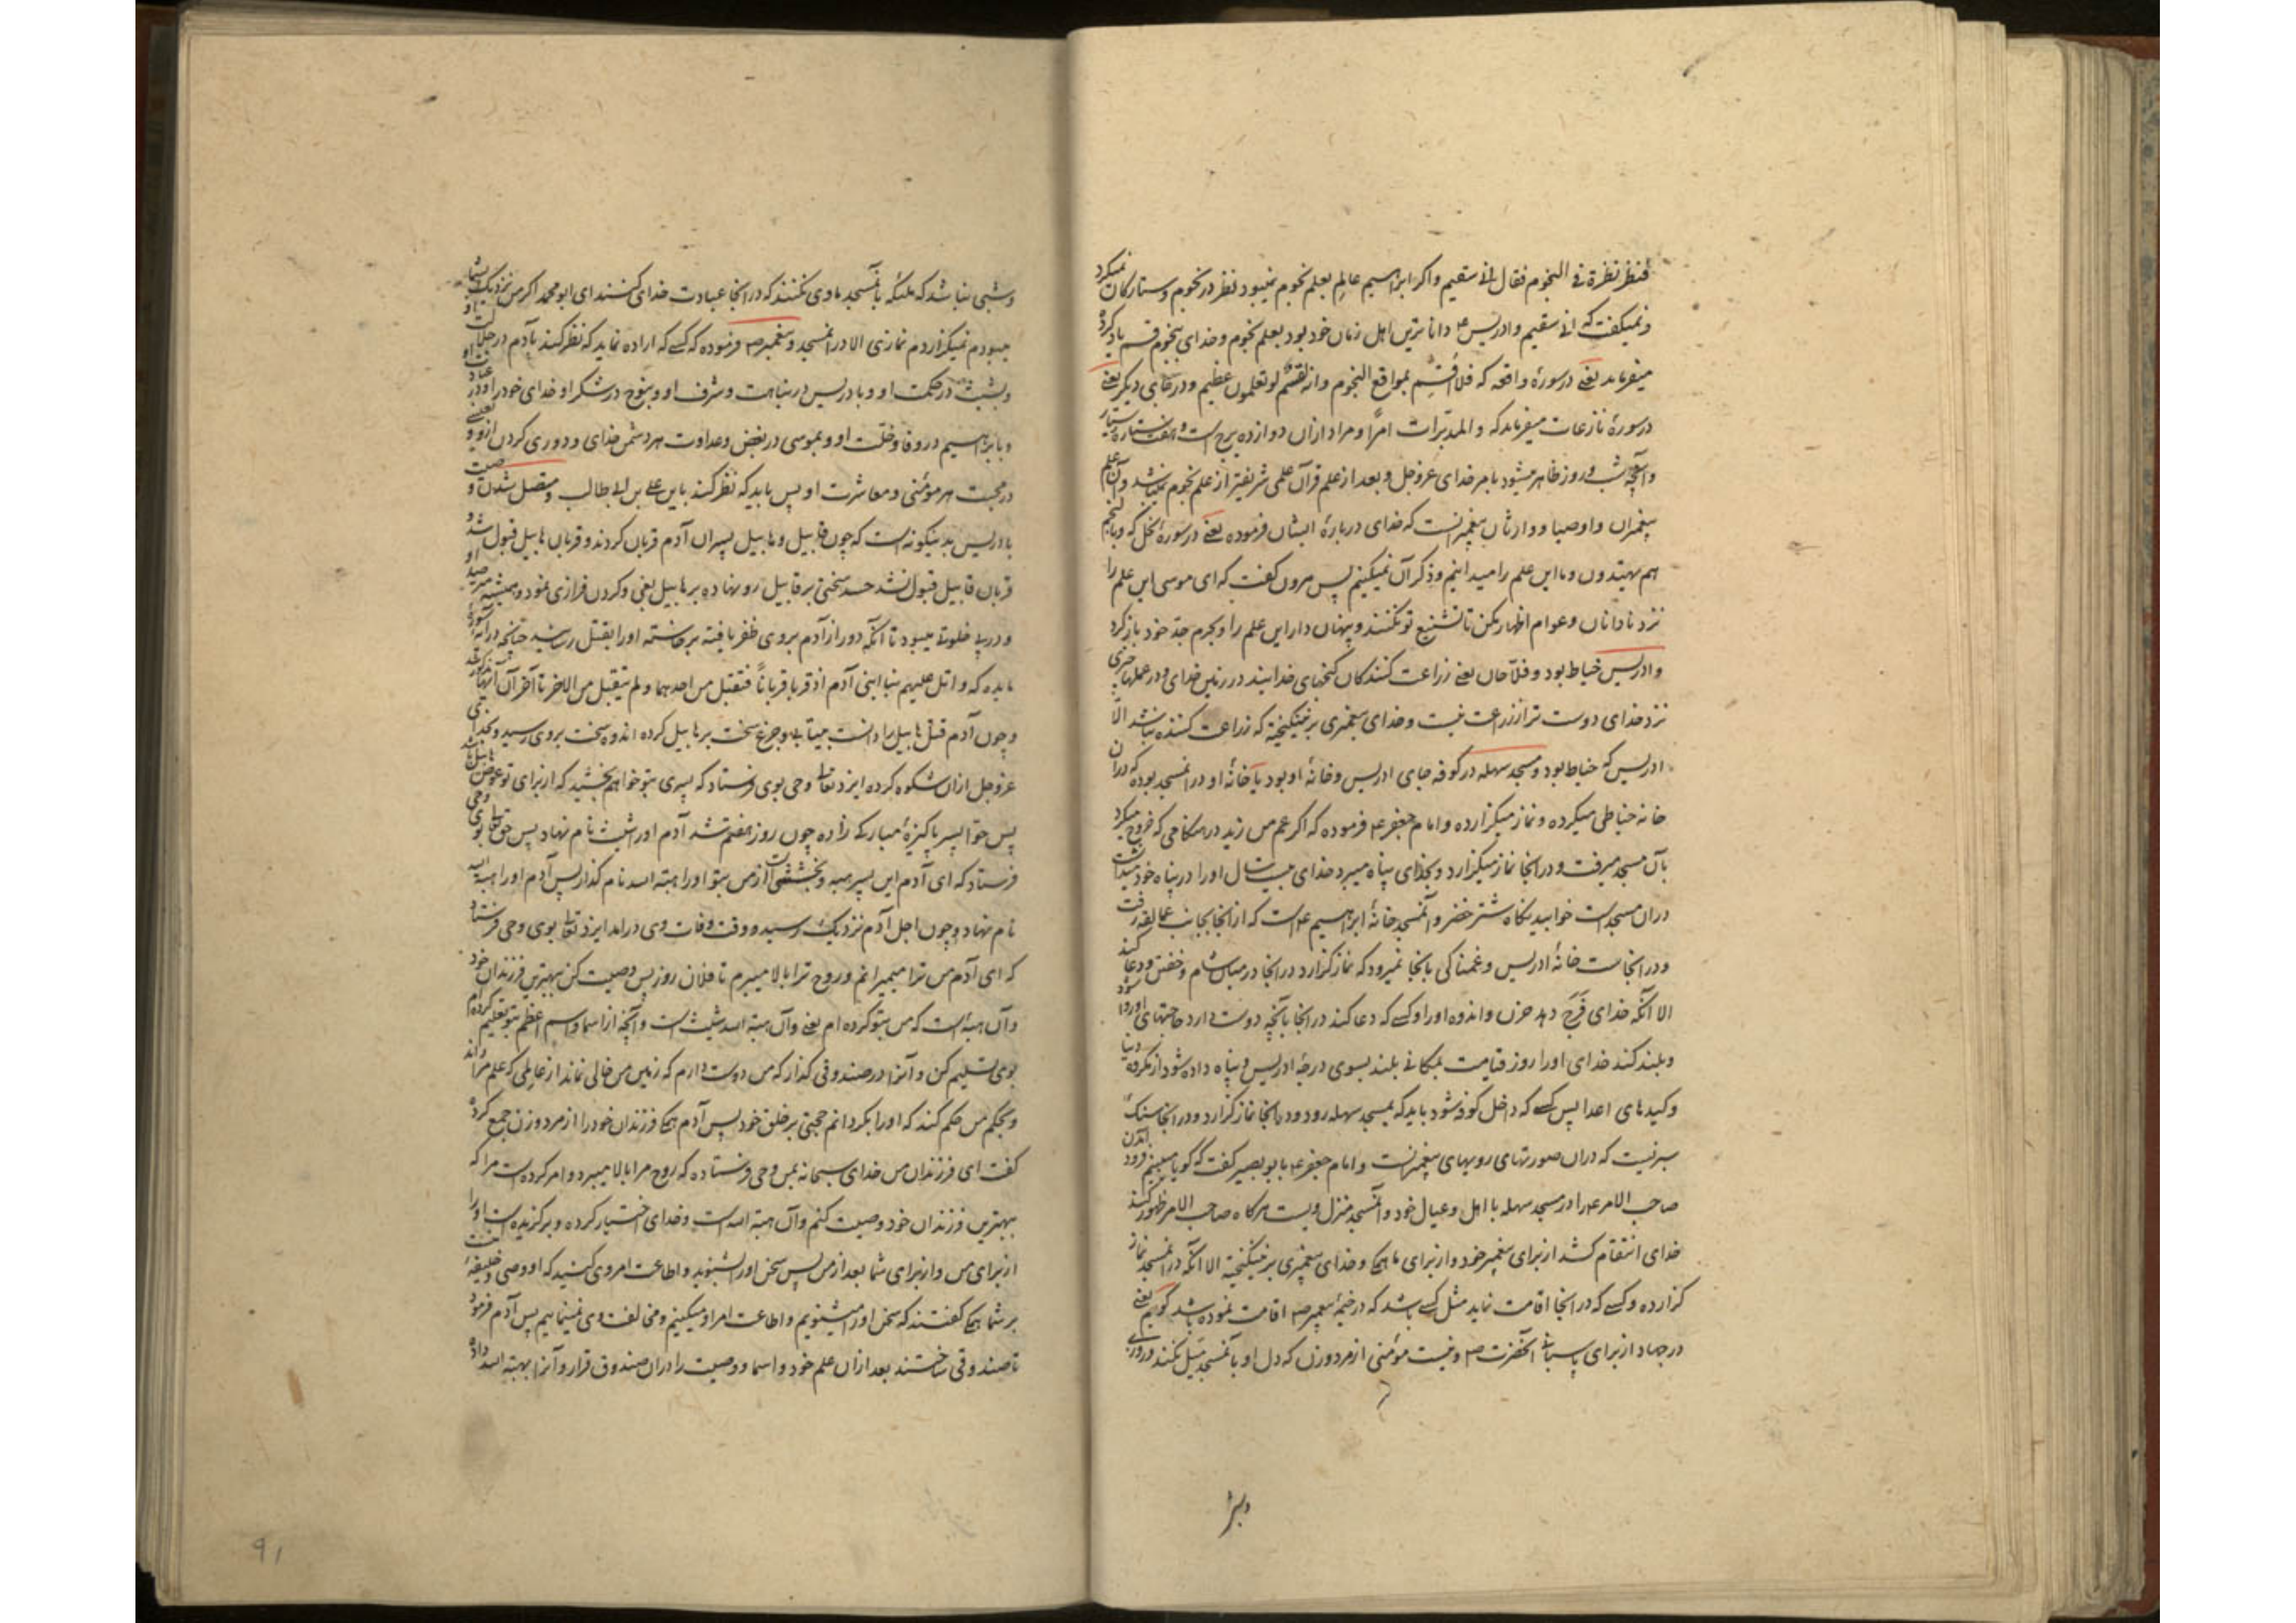 فنظر نظرة فی النجوم فقال انی سقیم و اکر ابراهیم عالم بعلم نجوم نمیبود نظر در نجوم و ستارکان نمیکرد
و نمیکفت که انی سقیم و ادریس ع داناترین اهل زمان خود بود بعلم نجوم و خدای بنجوم قسم یاد کرده
میفرماید یعنی در سورهٔ واقعه که فلا اقسم بمواقع النجوم و انه لقسم لو تعلمون عظیم و در جای دیکر یعنی
در سورهٔ نازعات میفرماید که و المدبرات امرًا و مراد ازان دوازده برج است و هفت ستاره سیار
و آنچه شب و روز ظاهر میشود بامر خدای عزوجل و بعد از علم قرآن علمی شریفتر از علم نجوم نمیباشد و آن علم
پیغمبران و اوصیا و وارثان پیغمبرانست که خدای دربارهٔ ایشان فرموده یعنی در سورهٔ نحل که و بالنجم
هم یهتدون و ما این علم را میدانیم و ذکر آن نمیکنیم پس هرون کفت که ای موسی این علم را
نزد نادانان و عوام اظهار مکن تا تشنیع تو نکنند و پنهان دار این علم را و بحرم جد خود باز کرد
و ادریس خیاط بود و فلاحان یعنی زراعت کنندکان کنجهای خدایند در زمین خدای و در عملها چیزی
نزد خدای دوست تر از زراعت نیست و خدای پیغمبری برنینکیخته که زراعت کننده نباشد الا
ادریس که خیاط بود و مسجد سهله در کوفه جای ادریس و خانهٔ او بود یا خانهٔ او در انمسجد بوده که دران
خانه خیاطی میکرده و نماز میکزارده و امام جعفر ع فرموده که اکر عم من زید در هنکامی که خروج میکرد
بآن مسجد میرفت و درانجا نماز میکزارد و بخدای پناه میبرد خدای بیست سال اورا در پناه خود میداشت
دران مسجد است خوابیدنکاه شتر خضر و آنمسجد خانهٔ ابراهیم ع است که ازانجا بجانب عمالقه رفت
و درانجاست خانهٔ ادریس و غمناکی بانجا نمیرود که نماز کزارد درانجا در میان شام و خفتن و دعا کند
الا آنکه خدای فرج دهد حزن و اندوه اورا و کسی که دعا کند درانجا بآنچه دوست دارد حاجتهای اوروا شود
و بلند کند خدای اورا روز قیامت بمکانی بلند بسوی درجهٔ ادریس و پناه داده شود از مکروه دنیا
و کیدهای اعدا پس کسی که داخل کوفه شود باید که بمسجد سهله رود و درانجا نماز کزارد و درانجا سنک
سبزیست که دران صورتهای رویهای پیغمبرانست و امام جعفر ع با بو بصیر کفت که کویا میبینم فرود آمدن
صاحب الامر ع را در مسجد سهله با اهل و عیال خود و آنمسجد منزل ویست هرکاه صاحب الامر ظهور کند
خدای انتقام کشد از برای پیغمبر خود و از برای ما همکی و خدای پیغمبری برنینکیخته الا آنکه درانمسجد نماز
کزارده و کسی که درانجا اقامت نماید مثل کسی باشد که در خیمهٔ پیغمبر ص اقامت نموده باشد کویم یعنی
در جهاد از برای پاسبانی آنحضرت ص و نیست مؤمنی از مرد و زن که دل او بآنمسجد میل نکند و روزی
و شبی نباشد که ملیکه بآنمسجد ماوی نکنند که درانجا عبادت خدای کنند ای ابو محمد اکر من نزدیک بشما
میبودم نمیکزاردم نمازی الا درانمسجد و پیغمبر ص فرموده که کسی که اراده نماید که نظر کند بآدم در جلالت او
و بشیث در حکمت او و بادریس در نباهت و شرف او و بنوح در شکر او خدای خودرا و در عبادت او
و بابراهیم در وفا و خلت او و بموسی در بغض و عداوت هر دشمن خدای و دوری کردن ازو و بعیسی
در محبت هر مؤمنی و معاشرت او پس باید که نظر کند باین علی بن ابی طالب و متصل شدن وصیت
بادریس بدینکونه است که چون قابیل و هابیل پسران آدم قربان کردند و قربان هابیل قبول شد و
قربان قابیل قبول نشد حسد سختی بر قابیل رو نهاده بر هابیل بغی و کردن فرازی نمود و همیشه مترصد او
و در پی خلوتی میبود تا آنکه دور از آدم بروی ظفر یافته برجاسته اورا بقتل رسانید چنانچه در آیهٔ سورهٔ
مایده که و اتل علیهم نبا ابنی آدم اذ قربا قربانًا فتقبل من احدهما و لم یتقبل من الاخر تا آخر آن آیتها مذکور شد
و چون آدم قتل هابیل را دانست بیتابی و جزع سخت بر هابیل کرده اندوه سخت بروی رسید و بخدای
عزوجل ازان شکوه کرده ایزد تعالی وحی بوی فرستاد که پسری بتو خواهم بخشید که از برای تو عوض هابیل باشد
پس حوا پسر پاکیزهٔ مبارکی زاده چون روز هفتم شد آدم اورا شیث نام نهاد پس حق تعالی وحی بوی
فرستاد که ای آدم این پسر هبه و بخششی است از من بتو اورا هبة الله نام کذار پس آدم اورا هبة الله
نام نهاد و چون اجل آدم نزدیک رسید و وقت وفات وی درامد ایزد تعالی بوی وحی فرستاد
که ای آدم من ترا میمیرانم و روح ترا بالا میبرم تا فلان روز پس وصیت کن ببهترین فرزندان خود
و آن هبه است که من بتو کرده ام یعنی و آن هبة الله شیث است و آنچه از اسما و اسم اعظم بتو تعلیم کرده ام
بوی تسلیم کن و آنرا در صندوقی کذار که من دوست دارم که زمین من خالی نماند از عالمی که علم مرا داند
و بحکم من حکم کند که اورا بکردانم حجتی بر خلق خود پس آدم همکی فرزندان خودرا از مرد و زن جمع کرده
کفت ای فرزندان من خدای سبحانه بمن وحی فرستاده که روح مرا بالا میبرد و امر کرده است مرا که
ببهترین فرزندان خود وصیت کنم و آن هبة الله است و خدای اختیار کرده و برکزیده است اورا
از برای من و از برای شما بعد از من پس سخن اورا بشنوید و اطاعت امر وی کنید که او وصی و خلیفهٔ منست
بر شما همکی کفتند که سخن اورا میشنویم و اطاعت امر او میکنیم و مخالفت وی نمینماییم پس آدم فرمود
تا صندوقی ساختند بعد ازان علم خود و اسما و وصیت را دران صندوق قرار و آنرا بهبة الله داده
91